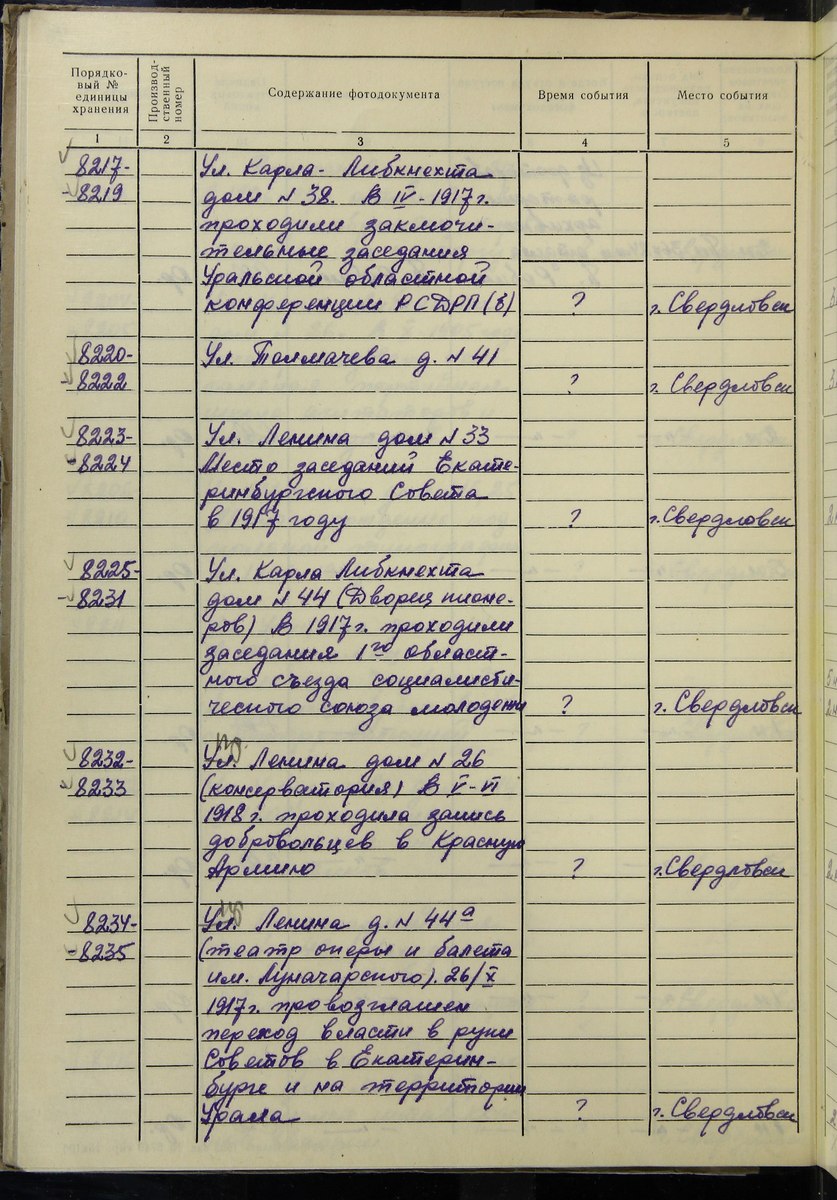 Порядко-
вый №
единицы
хранения
Производ-
ственный
номер
Содержание фотодокумента
Время события
Место события
1 2 3 4 5
8217- Ул. Карла-Либкнехта
-8219 дом N 38. В IV-1917г.
проходили заключи-
тельные заседания
Уральской областной
конференции РСДРП(б) ? г. Свердловск
8220- Ул. Толмачева д. N 41
-8222 ? г. Свердловск
8223- Ул. Ленина дом N 33
-8224 Место заседаний Екате-
ринбургского Совета
в 1917 году ? г. Свердловск
8225- Ул. Карла Либкнехта
-8231 дом N 44 (Дворец пионе-
ров) В 1917г. проходили
заседания 1го област-
ного съезда социалисти-
ческого союза молодежи ? г. Свердловск
8232- Ул. Ленина дом N 26
-8233 (консерватория) В V-VI
1918г. проходила запись
добровольцев в Красную
Армию ? г. Свердловск
8234- Ул. Ленина д. N 44а
-8235 (театр оперы и балета
им. Луначарского). 26/X
1917г. провозглашен
переход власти в руки
Советов в Екатерин-
бурге и на территории
Урала ? г. Свердловск